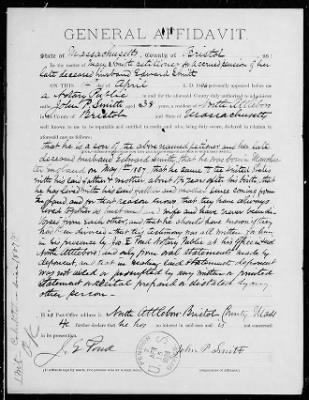 GENERAL AFFIDAVIT.
State of Massachusetts, County of Bristol, SS:
In the matter of Mary Smith petitioner for accrued pension of her
late deceased husband Edward Smith
ON THIS day of April A. D. personally appeared before me
a Notary Public in and for the aforesaid County duly authorized to administer
oaths John P. Smith aged 38 years, a resident of North Attleboro
in the County of Bristol and State of Massachusetts
well known to me to be reputable and entitled to credit, and who, being duly sworn, declared in relation to
aforesaid case as follows:
that he is a son of the above named petitioner and her late
deceased husband Edward Smith, that he was born in
England on May 1857, that he came to the United States
with his said father & mother about years after his birth, that
he has lived with his said father and mother since coming from
England and for that reason knows that they have always
lived together as husband and wife and have never been
divorced from each other, and that he should have known if they
had been divorced - that this testimony was all written for him
in his presence by J. G. Pond Notary Public at his office in said
North Attleboro, and only from oral statements made by
deponent, and that in making said statements deponent
was not aided or prompted by any written or printed
statement or recital prepared or dictated by any
other person.
H Post-Office address is North Attleboro Bristol County Mass
He further declare that he has no interest in said case and is not concerned
in its prosecution.
J. G. Pond
John P. Smith
U.S.